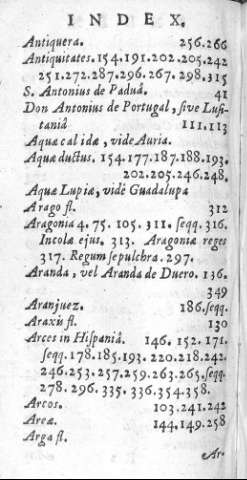 INDEX.
Antiquera. 256.266
Antiquitates. 154.191.202.205.242
251.272.287.296.267.298.315
S. Antonius de Paduâ. 41
Don Antonius de Portugal, sive Lusi-
taniâ 111.113
Aquæ calidæ, vide Auria.
Aquæductus. 154.177.187.188.193.
202.205.246.248.
Aquæ Lupiæ, vide Guadalupa
Arago fl. 312
Aragonia 4. 75. 105. 311. seqq. 316.
Incolæ ejus. 313. Aragoniæ reges
317. Regum sepulchra. 297.
Aranda, vel Aranda de Duero. 136.
349
Aranjuez. 186. seqq.
Araxis fl. 130
Arces in Hispaniâ. 146. 152. 171.
seqq. 178.185.193. 220.218.242.
246.253.257.259.263.265. seqq.
278. 296. 335. 336.354.358.
Arcos. 103.241.242
Area. 144.149.258
Arga fl.
Ar-